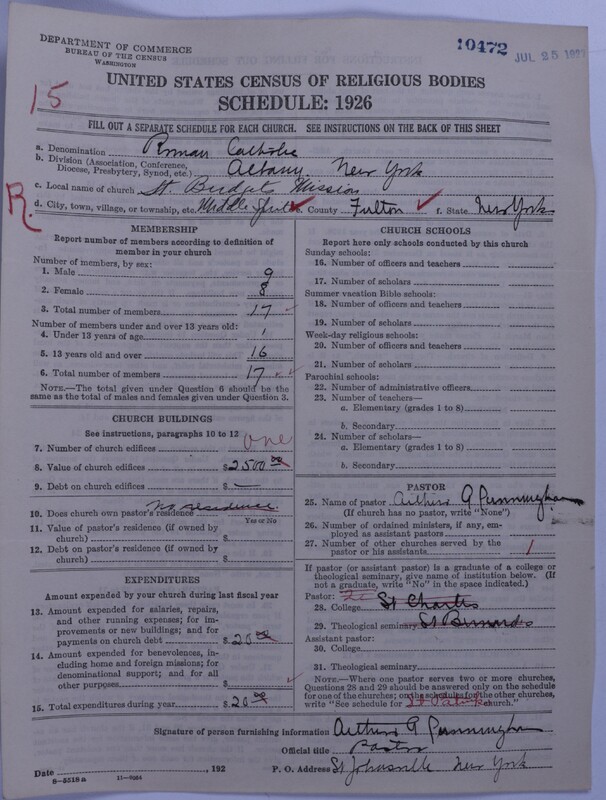 DEPARTMENT OF COMMERCE
BUREAU OF THE CENSUS
WASHINGTON
10472
JUL 25 1927
UNITED STATES CENSUS OF RELIGIOUS BODIES
SCHEDULE: 1926
15
FILL OUT A SEPARATE SCHEDULE FOR EACH CHURCH. SEE INSTRUCTIONS ON THE BACK OF THIS SHEET
a. Denomination Roman Catholic
b. Division (Association, Conference, Diocese, Presbytery, Synod, etc.) Albany, New York
c. Local name of church St. Bridgets Mission
R.
d. City, town, village, or township, etc. Middle e. County Fulton f. State New York
MEMBERSHIP
Report number of members according to definition of
member in your church
Number of members, by sex:
1. Male 9
2. Female 8
3. Total number of members 17
Number of members under and over 13 years old:
4. Under 13 years of age 1
5. 13 years old and over 16
6. Total number of members 17
NOTE.—The total given under Question 6 should be the
same as the total of males and females given under Question 3.
CHURCH BUILDINGS
See instructions, paragraphs 10 to 12
7. Number of church edifices one
8. Value of church edifices $2500 00
9. Debt on church edifices $ —
10. Does church own pastor's residence no residence
Yes or No
11. Value of pastor's residence (if owned by
church) $
12. Debt on pastor's residence (if owned by
church) $
EXPENDITURES
Amount expended by your church during last fiscal year
13. Amount expended for salaries, repairs,
and other running expenses; for im-
provements or new buildings; and for
payments on church debt $20 00
14. Amount expended for benevolences,
including home and foreign missions; for
denominational support; and for all
other purposes
15. Total expenditures during year $20 00
CHURCH SCHOOLS
Report here only schools conducted by this church
Sunday schools:
16. Number of officers and teachers
17. Number of scholars
Summer vacation Bible schools:
18. Number of officers and teachers
19. Number of scholars
Week-day religious schools:
20. Number of officers and teachers
21. Number of scholars
Parochial schools:
22. Number of administrative officers
23. Number of teachers—
a. Elementary (grades 1 to 8)
b. Secondary
24. Number of scholars—
a. Elementary (grades 1 to 8)
b. Secondary
PASTOR
25. Name of pastor Arthur G Cunningham
(If church has no pastor, write "None")
26. Number of ordained ministers, if any, em-
ployed as assistant pastors
27. Number of other churches served by the
pastor or his assistants 1
If pastor (or assistant pastor) is a graduate of a college or
theological seminary, give name of institution below. (If
not a graduate, write "No" in the space indicated.)
Pastor:
28. College St Charles
29. Theological seminary St Bernards
Assistant pastor:
30. College
31. Theological seminary
NOTE.—Where one pastor serves two or more churches,
Questions 28 and 29 should be answered only on the schedule
for one of the churches; on the schedules for the other churches,
write "See schedule for St Patricks church."
Signature of person furnishing information Arthur G Cunningham
Official title Pastor
Date , 192 P. O. Address St Johnsville New York
8-5518 a 11-9084